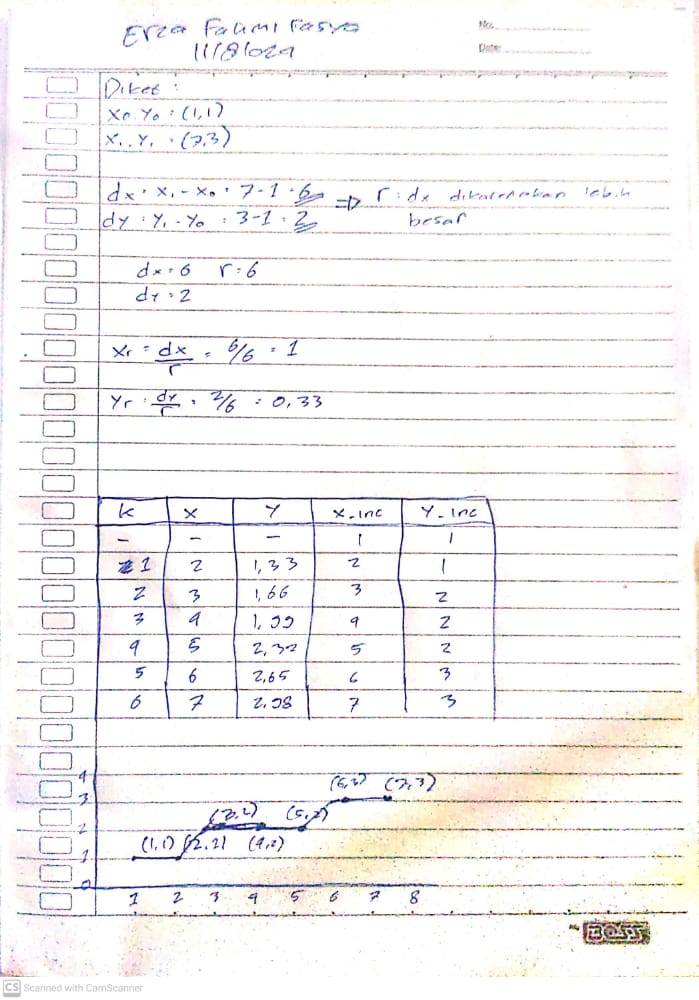 Erza Fahmi Fasya
No.
11/8/024
Date:
Diket :
X0.Y0 = (1,1)
X1.Y1 = (7,3)
dx = X1 - X0 = 7-1 = 6 ⇒ r = dx dikarenakan lebih
dy = Y1 - Y0 = 3-1 = 2 besar
dx = 6 r = 6
dy = 2
Xr = dx/r = 6/6 = 1
Yr = dy/r = 2/6 = 0,33
K X Y X_inc Y_inc
- - - 1 1
1 2 1,33 2 1
2 3 1,66 3 2
3 4 1,99 4 2
4 5 2,32 5 2
5 6 2,65 6 3
6 7 2,98 7 3
4
(6,3) (7,3)
3
(3,2) (5,2)
2
(1,1) (2,2) (4,2)
1
0
1 2 3 4 5 6 7 8
BOSS
CS Scanned with CamScanner